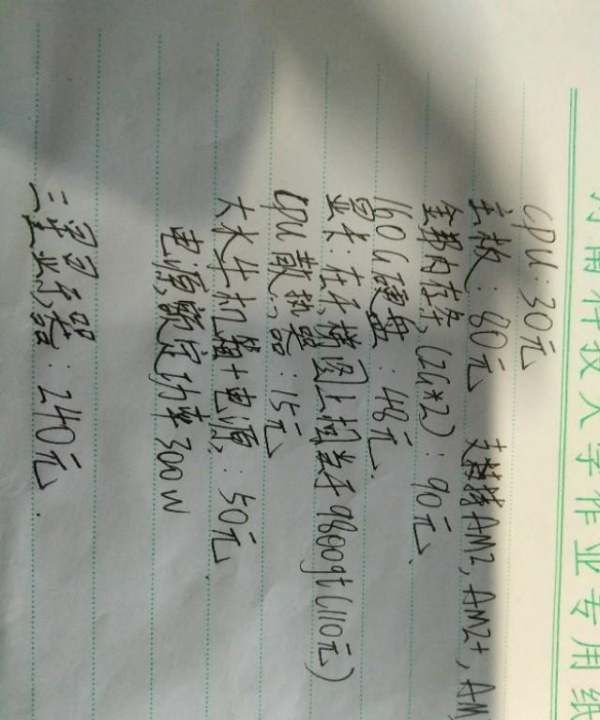 河南科技大学作业专用纸
CPU:30元
主板:80元 支持AM2,AM2+,AM
金邦内存条(2G*2):90元
160G硬盘:48元
显卡:在楼图上相当于9800gt(110元)
CPU散热器:15元
大水牛机箱+电源:50元
电源额定功率300W
三星显示器:240元